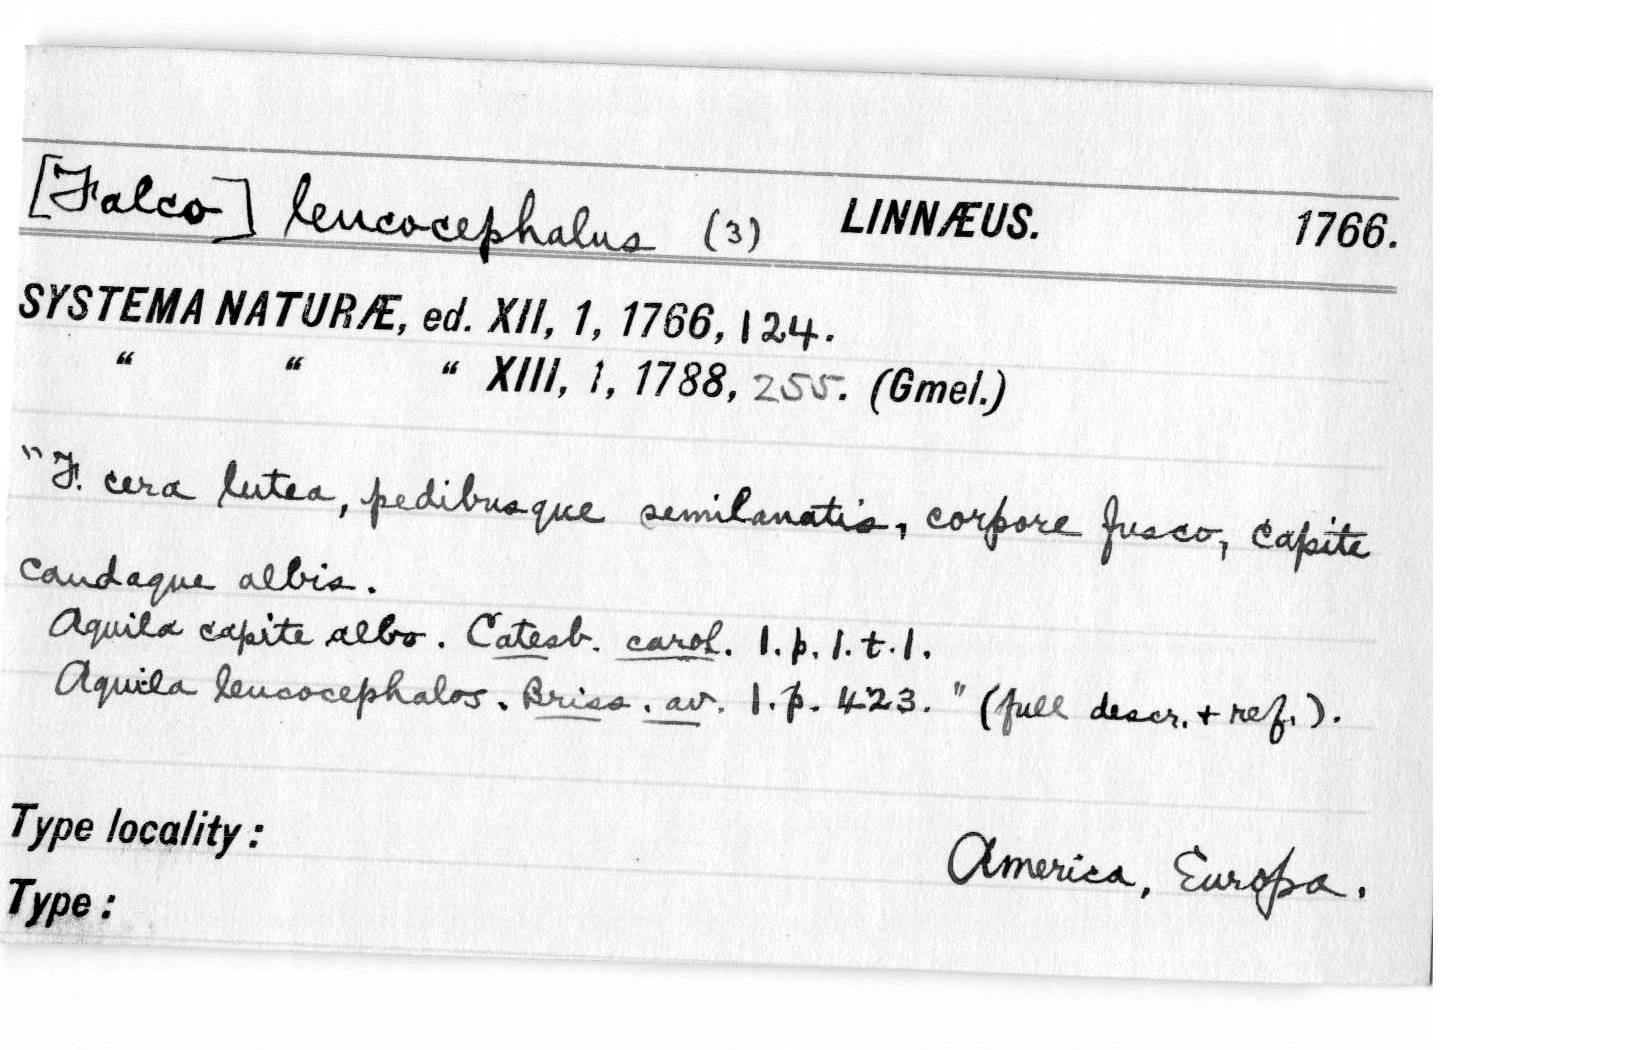 [Falco] leucocephalus (3) LINNÆUS. 1766.
SYSTEMA NATURÆ, ed. XII, 1, 1766, 124.
“ “ “ XIII, 1, 1788, 255. (Gmel.)
"F. cera lutea, pedibusque semilanatis, corpore fusco, capite
caudaque albis.
Aquila capite albo. Catesb. carol. 1. p. 1. t. 1.
Aquila leucocephalos. Briss. av. 1. p. 423." (full descr. + ref.).
Type locality: America, Europa.
Type: